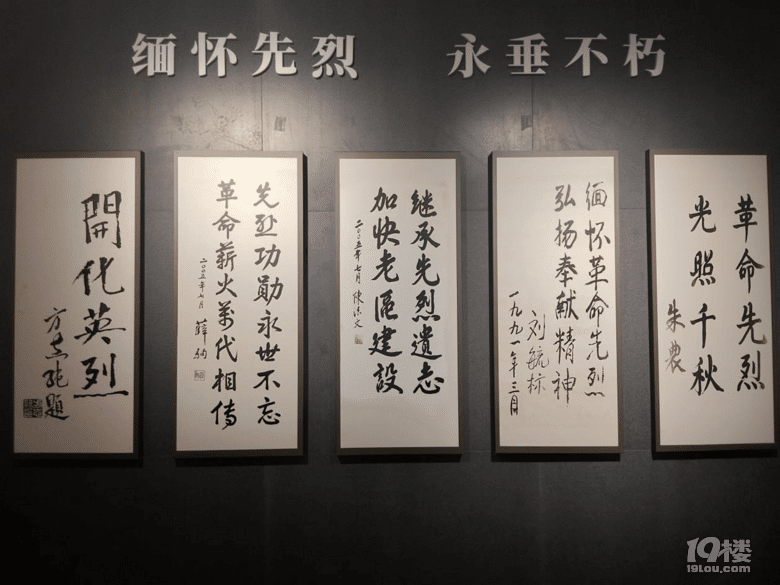 缅怀先烈 永垂不朽
開化英烈
题
先烈功勋永世不忘
革命薪火万代相传
二〇〇五年七月 薛驹
继承先烈遗志
加快老區建設
二〇〇五年七月 陈法文
缅怀革命先烈
弘扬奉献精神
刘毓标
一九九一年三月
革命先烈
光照千秋
朱農
19楼
19lou.com